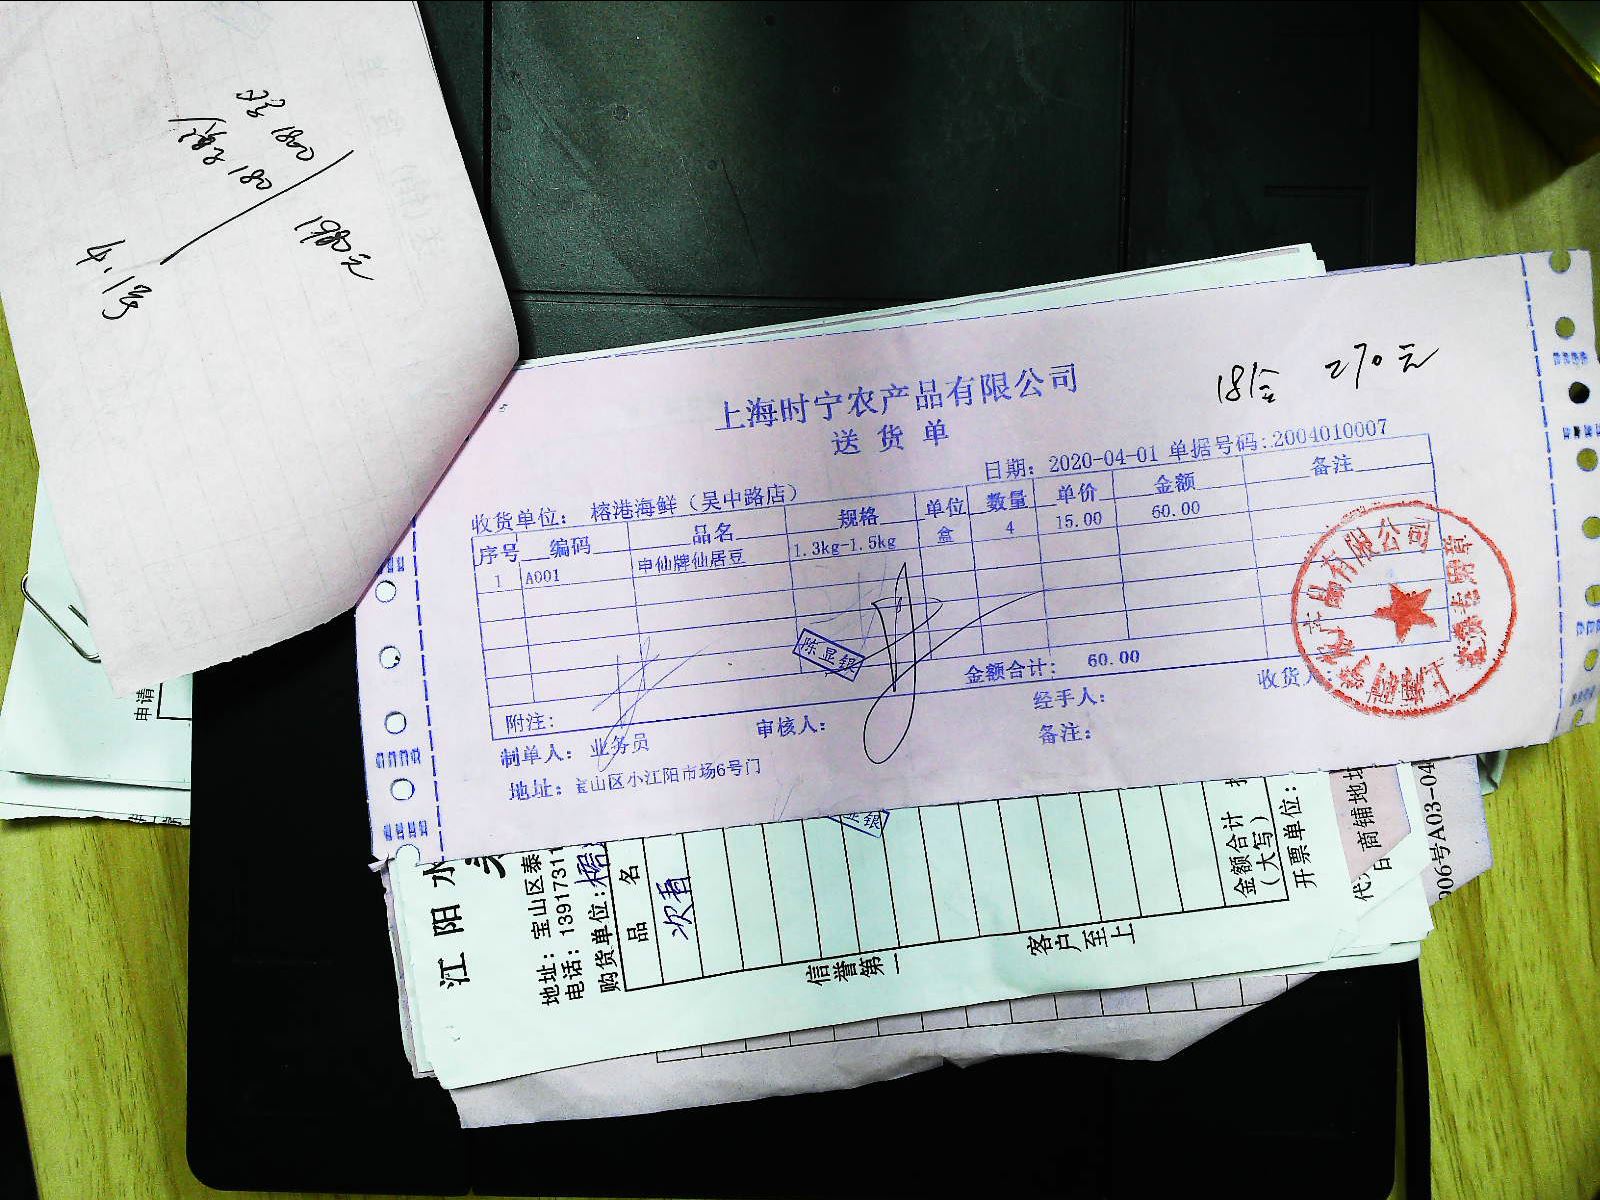 1800
180
1980元
4.1号
18盒 270元
上海时宁农产品有限公司
送货单
日期: 2020-04-01 单据号码:2004010007
收货单位: 榕港海鲜（吴中路店）
序号 编码 品名 规格 单位 数量 单价 金额 备注
1 A001 申仙牌仙居豆 1.3kg-1.5kg 盒 4 15.00 60.00
陈显银
金额合计: 60.00
附注:
制单人: 业务员 审核人: 经手人: 收货人:
地址: 宝山区小江阳市场6号门 备注:
产品有限公司
申请
江阳水
地址: 宝山区泰
电话: 1391731
购货单位:
品名
次青
信誉第一
客户至上
金额合计
(大写)
开票单位:
商铺地址
906号A03-04